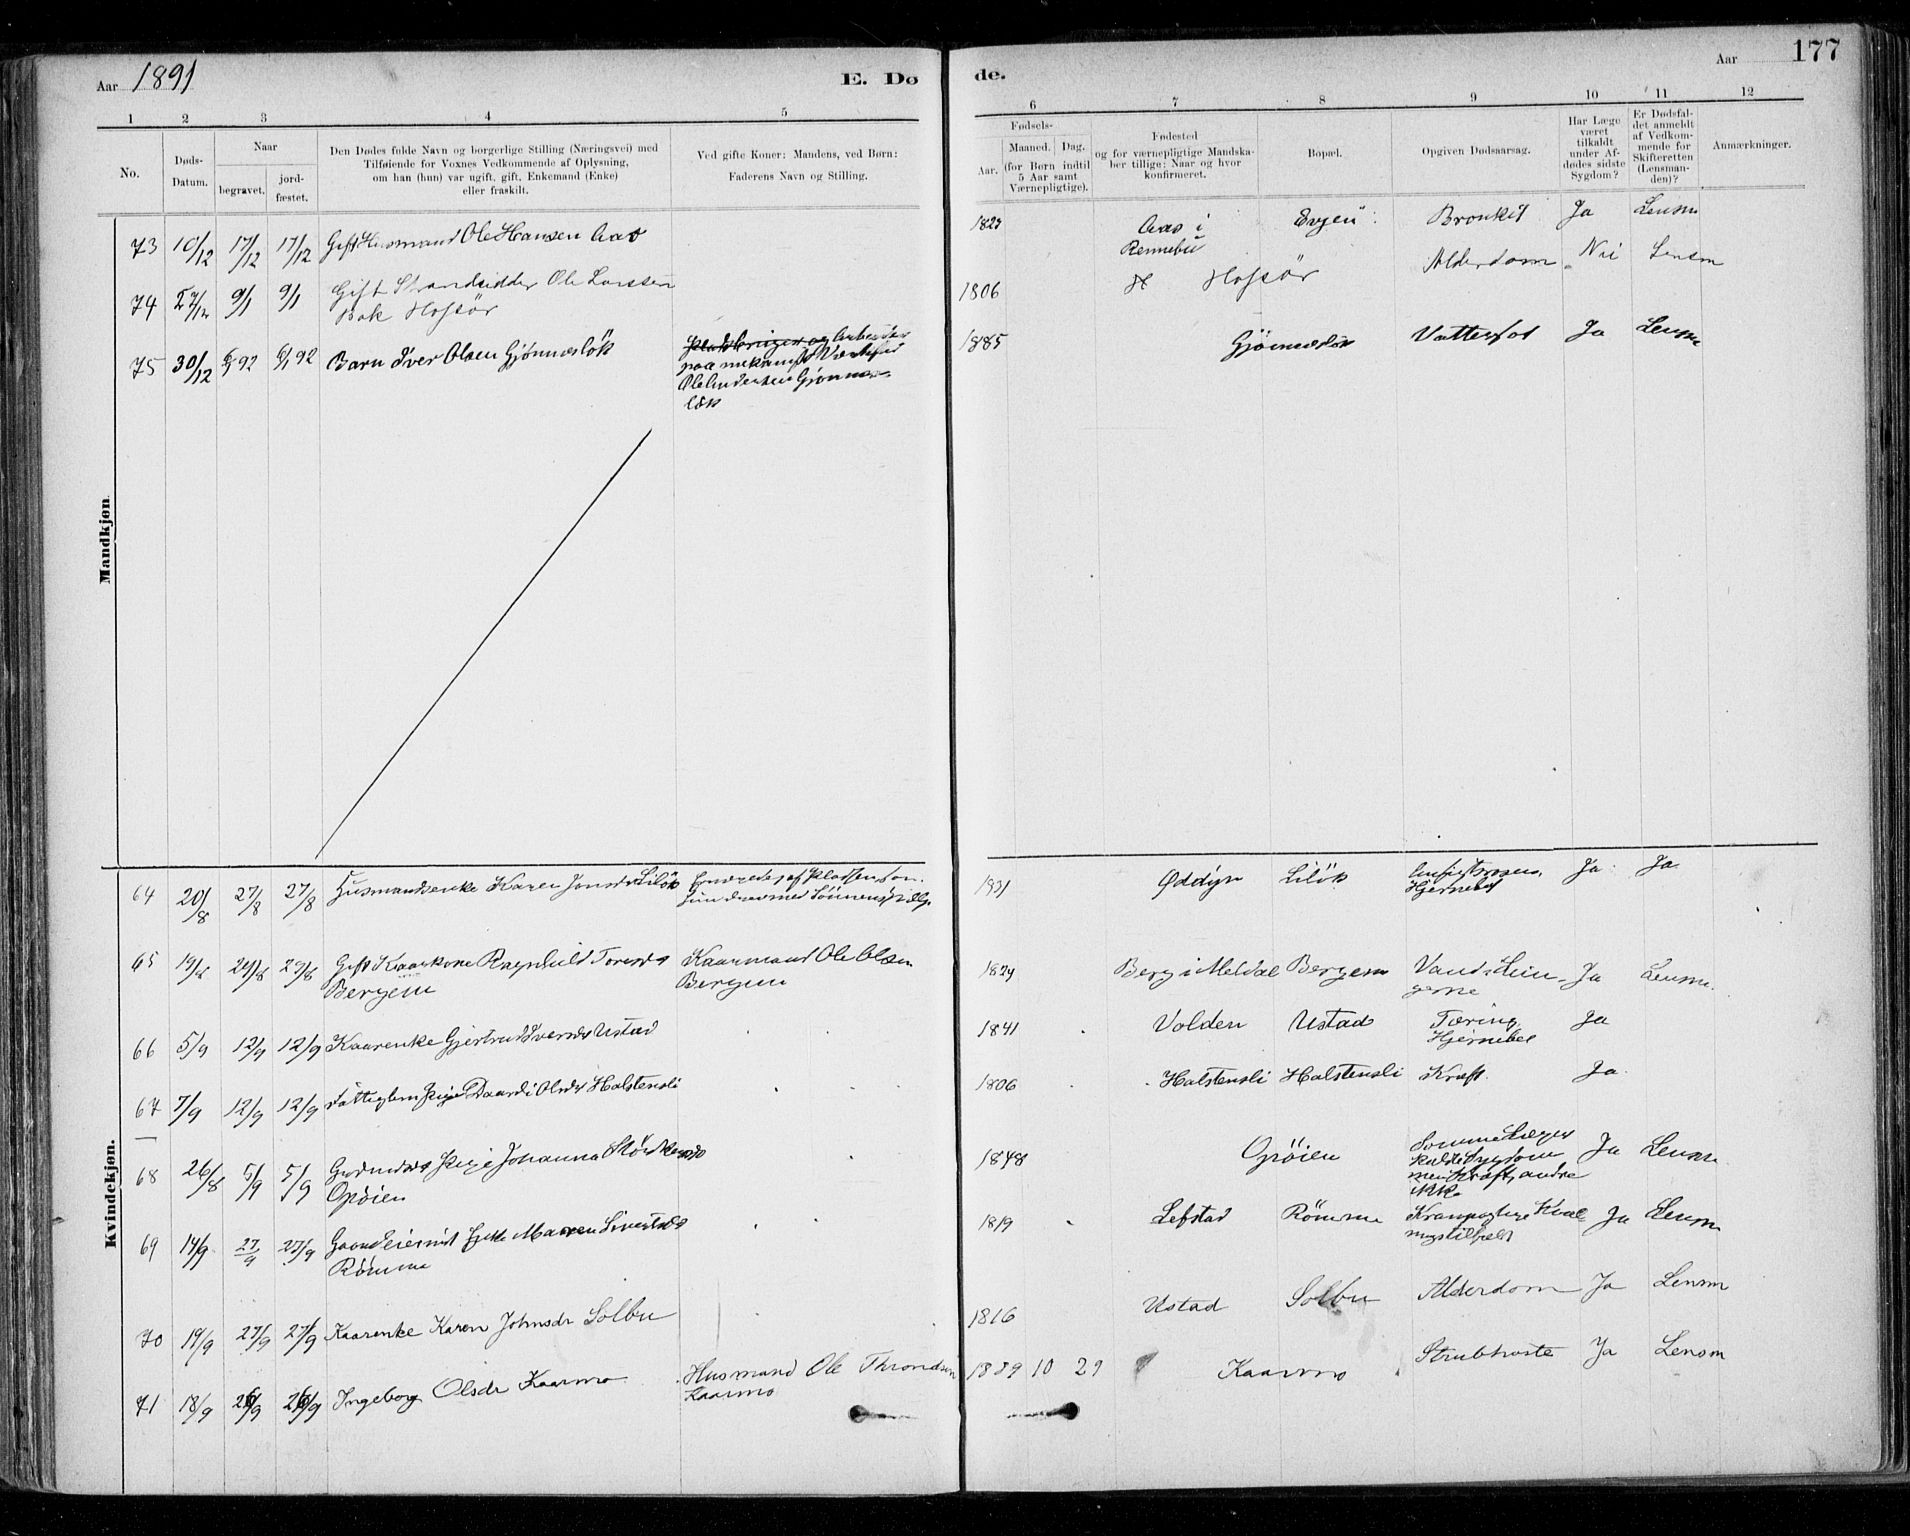 Aar 1891
E. Dø
de.
Aar
177
1 2 3 4 5
6 7 8 9 10 11 12
No.
Døds-
Datum.
Naar
begravet.
jord-
fæstet.
Den Dødes fulde Navn og borgerlige Stilling (Næringsvei) med
Tilføiende for Voxnes Vedkommende af Oplysning,
om han (hun) var ugift, gift, Enkemand (Enke)
eller fraskilt.
Ved gifte Koner: Mandens, ved Børn:
Faderens Navn og Stilling.
Fødsels-
Aar.
Maaned. Dag.
(for Børn indtil
5 Aar samt
Værnepligtige).
Fødested
og for værnepligtige Mandska-
ber tillige: Naar og hvor
konfirmeret.
Bopæl.
Opgiven Dødsaarsag.
Har Læge
været
tilkaldt
under Af-
dødes sidste
Sygdom?
Er Dødsfal-
det anmeldt
af Vedkom-
mende for
Skifteretten
(Lensman-
den)?
Anmærkninger.
Mandkjøn
73 10/12 17/12 17/12 Gift Husmand Ole Hansen Aas
1823 Aas i
Rennebu
Evjen Bronkit Ja Lensm
74 27/12 9/1 9/1 Gift Strandsidder Ole Larssen
Bak Hofsör
1806 Hofsör Alderdom Nei Lensm
75 30/12 6/1 92 6/1 92 Barn Iver Olsen Gjönneslök
Arbeider
paa mekanisk Værksted
Ole Andersen Gjönnes-
lök
1885 Gjönneslök Vattersot Ja Lensm
Kvindekjøn.
64 20/8 27/8 27/8 Husmandsenke Karen Jonsdr Lilök
1831 Øddyn Lilök
Hjerneb
Ja Ja
65 19/8 29/8 29/8 Gift Kaarkone Ragnhild Toresdr
Bergem
Kaarmand Ole Olsen
Bergem
1824 Berg i Meldal Bergem Vand i Lun-
gerne
Ja Lensm.
66 5/9 12/9 12/9 Kaarenke Gjertrud Iversdr Ustad
1841 Volden Ustad Tæring
Hjernebet
Ja
67 7/9 12/9 12/9 Fattiglem Pige Daardi Olsdr Halstensli
1806 Halstensli Halstensli Kræft. Ja.
68 26/8 5/9 5/9 Pige Johanna Störkersdr
Opöien
1848 Opöien
Somme Læger
kaldte Sygdom
men Kræft, andre
ikke
Ja Lensm
69 14/9 27/9 27/9 Enke Maren Sivertsdr
Römme
1819 Lefstad Römme Krampagtige Kvæl
ningstilfeld
Ja Lensm
70 19/9 27/9 27/9 Kaarenke Karen Johnsdr Solbu
1816 Ustad Solbu Alderdom Ja Lensm
71 18/9 26/9 26/9 Ingeborg Olsdr Kaarmo
Husmand Ole Throndsen
Kaarmo
1889 10 29 Kaarmo Strubhoste Ja Lensm